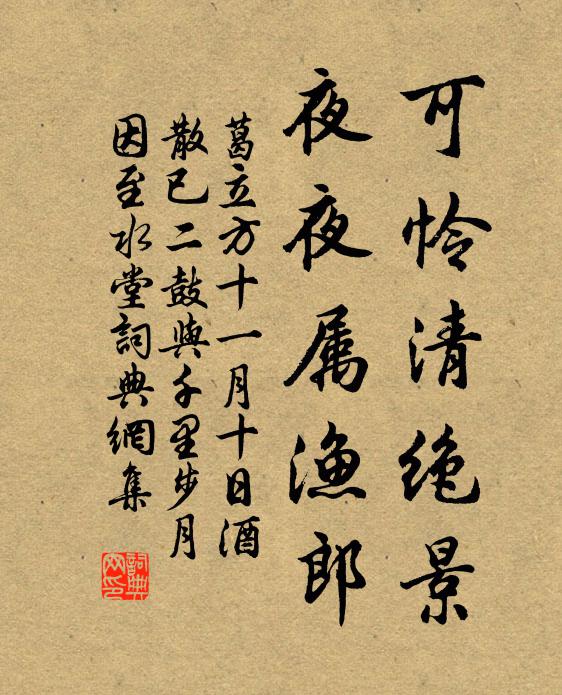 可怜清絶景
夜夜属漁郎
葛立方十一月十日酒
散已二鼓與千里步月
因至水堂詞典網集
詞典网印